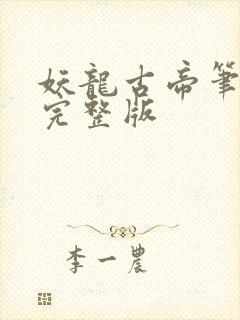 妖龍古帝筆
完整版
李一農